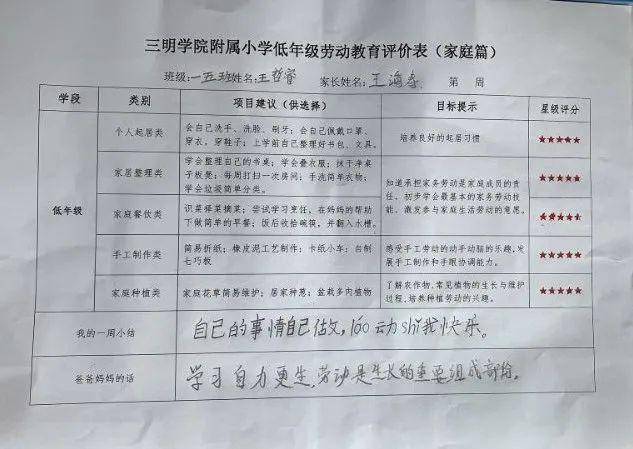 三明学院附属小学低年级劳动教育评价表（家庭篇）
班级:一五班姓名:王哲睿 家长姓名: 王海 第 周
学段 类别 项目建议（供选择） 目标提示 星级评分
低年级
个人起居类
会自己洗手、洗脸、刷牙；会自己佩戴口罩、
穿衣，穿鞋子；上学前自己整理好书包、文具。
培养良好的起居习惯
★★★★★
家居整理类
学会整理自己的书桌；学会叠衣服；抹干净桌
子板凳；每周打扫一次房间；手洗简单衣物；
学会垃圾简单分类。
知道承担家务劳动是家庭成员的责
任。初步学会最基本的家务劳动技
能，激发参与家庭生活劳动的意愿。
★★★★★
家庭餐饮类
识菜择菜摘菜；尝试学习烹饪，在妈妈的帮助
下做简单的早餐；饭后收拾碗筷，并翻入水槽。
★★★★★
手工制作类
简易折纸；橡皮泥工艺制作；卡纸小车；自制
七巧板
感受手工劳动的动手动脑的乐趣，发
展手工制作和手眼协调能力。
★★★★★
家庭种植类
家庭花草简易维护；居家种葱；盆栽多肉植物
了解农作物、常见植物的生长与维护
过程，培养种植劳动的兴趣。
★★★★★
我的一周小结
自己的事情自己做，láo动shǐ我快乐。
爸爸妈妈的话
学习自力更生，劳动是生长的重要组成部份。